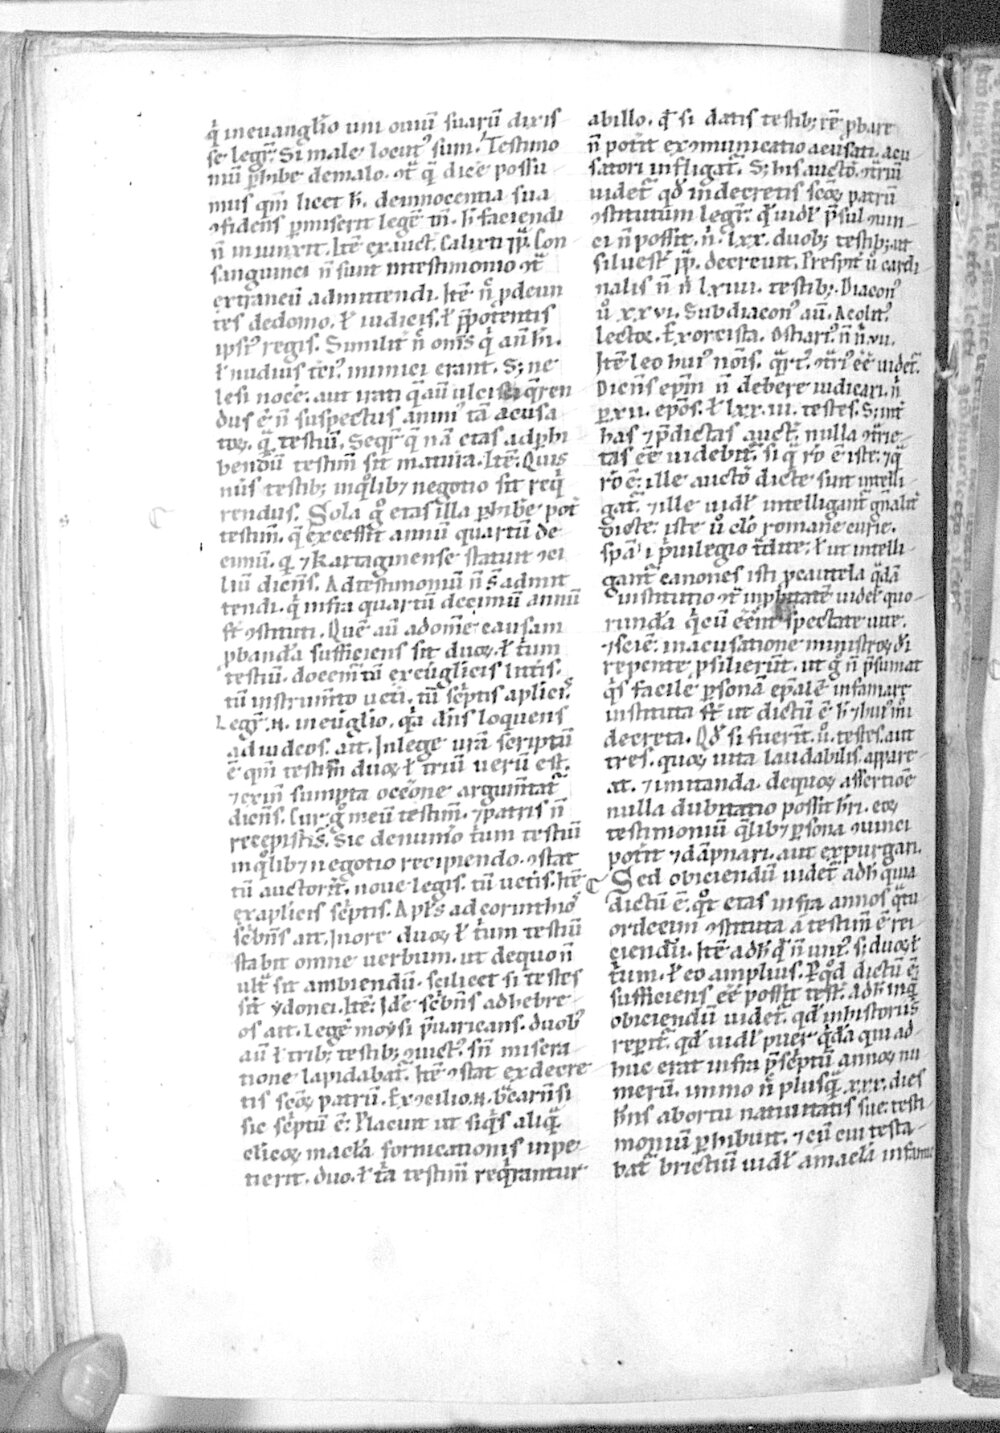 q̇ in euanglio uni ouiũ suarũ diris
se legr̃. Si male locutꝰ sum. Testimo
niũ ꝑhibe de malo. ⁊t̃ q̃ dicẽ possu
mus qm̃ licet h̃. de innocentia sua
ꝯfidens ꝑmiserit legẽ tñ. h̃ faciendi
ñ iniunxit. Itẽ ex auct̃. Calixti pp̃. Con
sanguinei ñ sunt in testimonio ⁊t̃
extraneũ admittendi. Itẽ n̊ ꝓdeun
tes de domo. ł iudicis. ł p̃potentis
ipsiꝰ regis. Similit̃ ñ om̃s q̇ aũ h̃i.
ł nudius t̃ciꝰ inimici erant. S; ne
lesi nocẽ. aut irati q̇ aũ ulcisci q̃ren
dus ẽ ñ suspectus animꝰ tã acusa
toꝝ. q̃ testiũ. Seqr̃ q̃ nã etas ad ꝑhi
bendũ testim̃ sit matura. Itẽ. Quis
nũs testib; in qͦlib; negotio sit req̇
rendus. Sola g̊ etas illa ꝑhibẽ pot̃
testim̃. q̃ excessit annũ quartũ de
cimũ. q̇ ⁊ Kartaginense statuit ꝯci
liũ dicẽs. Ad testimoniũ ñ s̃ admit
tendi. q̇ infra quartũ decimũ annũ
st̃ ꝯstituti. Quẽ aũ ad om̃e causam
ꝓbanda sufficiens sit duoꝝ. ł trium
testiũ. docem̃ tũ ex euglicis litt̃is.
tũ instrum̃to uet̃i. tũ sc̃ptis aplicis.
Legr̃. n. in euglio. q̇a dñs loquens
ad iudeos. ait. In lege ur̃a scriptũ
ẽ qm̃ testim̃ duoꝝ ł triũ uerũ est.
⁊ exim̃ sumpta occ̃one argum̃tat̃
dicẽs. Cur g̊ meũ testim̃. ⁊ patris ñ
recepistis. Sic de numĩo trium testiũ
in qͦlib; negotio recipiendo. ꝯstat
tũ auctorit̃. noue legis. tũ uet̃is. Itẽ
ex aplicis sc̃ptis. Apl̃s ad corinthioꝰ
sc̃bñs ait. In ore duoꝝ ł trium testiũ
stabit omne uerbum. ut de quo ñ
ult̃ sit ambiendũ. scilicet si testes
sit̃ ydonei. Itẽ. Idẽ sc̃bñs ad hebre
os ait. Legẽ moysi p̃uaricans. duobꝰ
aũ ł trib; testib; ꝯuictꝰ. sñ misera
tione lapidabat̃. Itẽ ꝯstat ex decre
tis sc̃oꝝ patrũ. Ex ꝯcilio. n. bẽarn̄si
sic sc̃ptũ ẽ. Placuit ut siq̃s aliq̃
clicoꝝ macła fornicationis inpe
tierit. duo. ł t̃a testim̃ req̃rantur
abillo. q̃ si datis testib; rẽ ꝓbare
ñ potit̃ exꝯmunicatio acusati. acu
satori infligat̃. S; his auctõ. ꝯtr̃iũ
uidet̃ qd̃ in decretis sc̃oꝝ patrũ
ꝯstitutum legr̃. q̃ uidł p̃sul ꝯuin
ci ñ possit. ñ. lxx. duob; testib; ut
siluest̃ pp̃. decreuit. Presbit̃ ů cardi
nalis ñ ñ lxiiii. testib;. Diaconꝰ
ů xxvi. Subdiaconꝰ aũ. Acolitꝰ.
Lectoꝝ. Exorcista. Ostiariꝰ. ñ ñ. vii.
Itẽ leo huiꝰ nois. q̃rtꝰ. ꝯtr̃iꝰ eẽ uidet̃.
Dicẽs epm̃ ñ debere iudicari. ñ
ꝑ. xii. epõs. ł lxx. ii. testes. S; int̃
has ⁊ p̃dictas auct̃. nulla ꝯtr̃ie
tas eẽ uidebit̃. si q̃ rõ ẽ iste. ⁊ q̃
rõ ẽ. ille auctõ dicte sunt intelli
gat̃. ⁊ ille uidł intelligant̃ gñalit̃
dicte. iste ů clõ romane curie.
spãi p̃uilegio t̃dite. ł ut intelli
gant̃ canones isti ꝓ cautela q̃dã
institutio ⁊t̃ improbitatẽ uidet̃ quo
runda. q̇ cũ eẽnt spectate uite.
⁊ sciẽ. in acusatione ministroꝝ dĩ
repente ꝓsilierũt. ut g̊ ñ p̃sumat
q̃s facile ꝑsonã ep̃alẽ infamare
instituta st̃ ut dictũ ẽ h̃ ⁊ huiꝰm̃i
decreta. Qd̃ si fuerit̃. ů. testes. aut
tres. quoꝝ uita laudabilis appare
at. ⁊ imitanda. de quoꝝ assertiõe
nulla dubitatio possit h̃ri. eoꝝ
testimoniũ q̃lib; ꝑsona ꝯuinci
potit̃ ⁊ dãpnari. aut expurgari.
Sed obiciendũ uidet̃ adh̃ quia
dictũ ẽ. qͦt etas infra annos q̃tu
ordecim ꝯstituta a testim̃ ẽ rei
ciendũ. Itẽ adh̃ q̃ ñ unꝰ. s; duoꝝ ł
trium. ł eo amplius. Ꝑ qͦd dictũ ẽ
sufficiens eẽ possit test̃. adh̃ inq̃
obiciendũ uidet̃. qd̃ in historiis
reperit̃. qd̃ uidł puer q̃dã qui ad
huc erat infra p̃sc̃ptũ annoꝝ nu
merũ. immo ñ plusq̃. xxx. dies
h̃ns ab ortu natiuitatis sue. testi
moniũ ꝑhibuit. ⁊ cũ cui testa
bat̃ brictiũ uidł a macła infamie